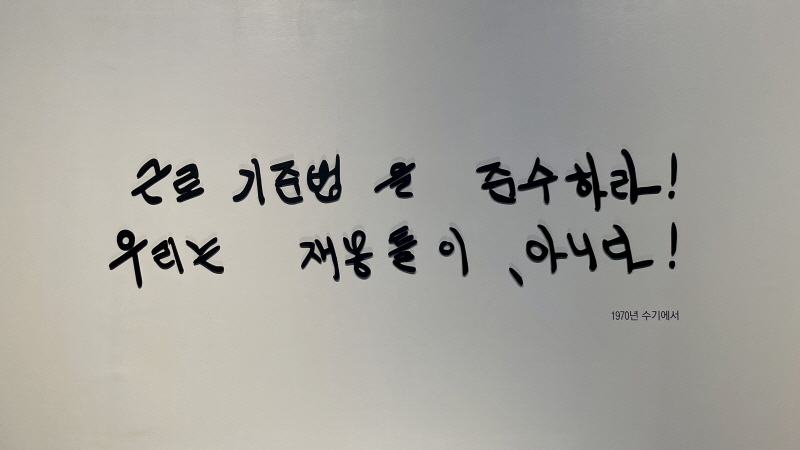 근로 기준법을 준수하라!
우리는 재봉틀이 아니다!
1970년 수기에서